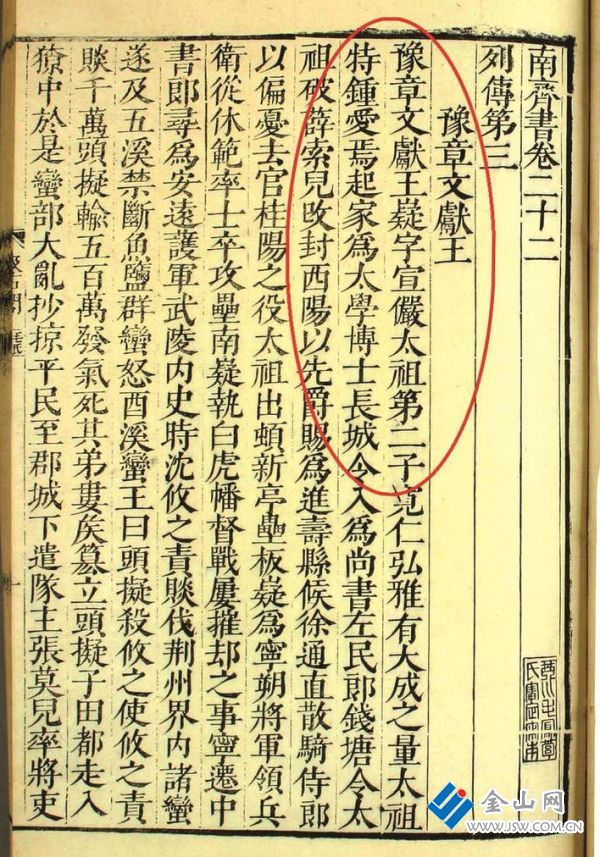 南齊書卷二十二
列傳第三
豫章文獻王
豫章文獻王嶷字宣儼太祖第二子寬仁弘雅有大成之量太祖
特鍾愛焉起家爲太學博士長城令入爲尚書左民郎錢塘令太
祖破薛索兒改封西陽以先爵賜爲晉壽縣侯徐通直散騎侍郎
以偏憂去官桂陽之役太祖出頓新亭壘板嶷爲寧朔將軍領兵
衛從休範率士卒攻壘南嶷執白虎幡督戰屢摧却之事寧遷中
書郎尋爲安遠護軍武陵内史時沈攸之責賧伐荆州界内諸蠻
遂及五溪禁斷魚鹽群蠻怒酉溪蠻王田頭擬殺攸之使攸之責
賧千萬頭擬輸五百萬發氣死其弟婁矦篡立頭擬子田都走入
獠中於是蠻部大亂抄掠平民至郡城下遣隊主張莫兒率將吏
金山网
WWW.JSW.COM.CN